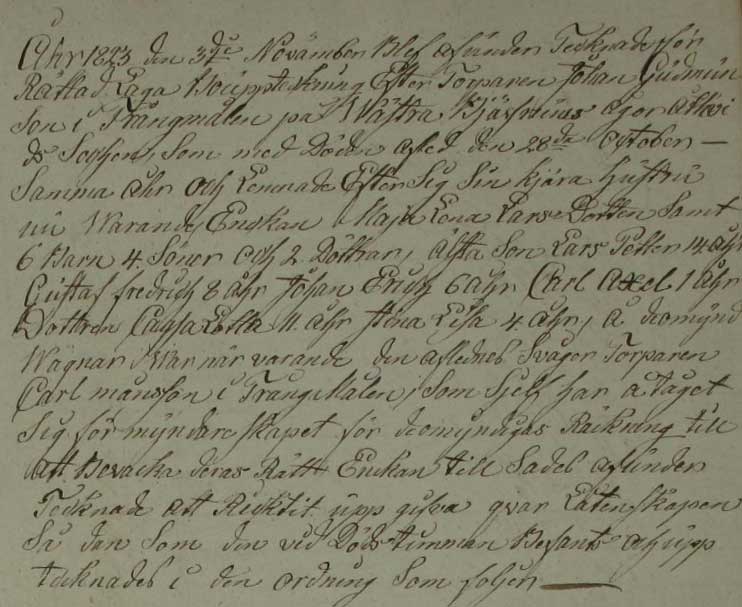 Åhr 1823 den 3de November Blef af under Tecknade för
Rättad Laga Bouppteckning Efter Torparen Johan Gudmun
Son i Trångmålen på Wästra
Sochen, Som med Döden afled den 28de October —
Samma Åhr och Lemnade Efter Sig Sin kjära Hustru
nu Warande Enckan Maja Lena Lars Dotter Samt
6 Barn 4. Söner och 2. Döttrar, älsta Son Lars Petter 14. åhr
Gustaf fredrich 8 åhr Johan Erich 6 åhr Carl Axel 1 åhr
Dottren Cajsa Lotta 11. åhr Stina Lisa 4 åhr, å deomynd
Wägnar War när varande den aflednes Svåger Torparen
Carl månsson i Trångmålen, Som Sjelf har å taget
Sig för myndare skapet för deomyndigas Räckning till
att Bevacka deras Rätt Enckan till Sades af under
Tecknade att Ricktit upp gifva qvar Låtenskapen
Så dan Som den vid Döds timman Befants och upp
tecknades i den ordning Som foljer —